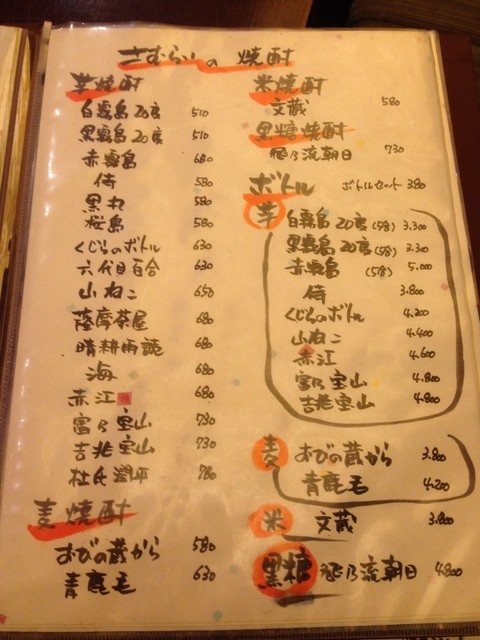 さむらいの 焼酎
芋焼酎
白霧島 20度 510
黒霧島 20度 510
赤霧島 680
侍 580
黒丸 580
桜島 580
くじらのボトル 630
六代目百合 630
山ねこ 650
薩摩茶屋 680
晴耕雨読 680
海 680
赤江 680
富乃宝山 730
吉兆宝山 730
杜氏潤平 780
麦焼酎
おびの蔵から 580
青鹿毛 630
米焼酎
文蔵 580
黒糖焼酎
飛乃流朝日 730
ボトル ボトルセット 380
芋
白霧島 20度(5合) 3.300
黒霧島 20度(5合) 3.300
赤霧島 (5合) 5.000
侍 3.800
くじらのボトル 4.200
山ねこ 4.400
赤江 4.600
富乃宝山 4.800
吉兆宝山 4.800
麦
おびの蔵から 3.800
青鹿毛 4.200
米 文蔵 3.800
黒糖 飛乃流朝日 4.800